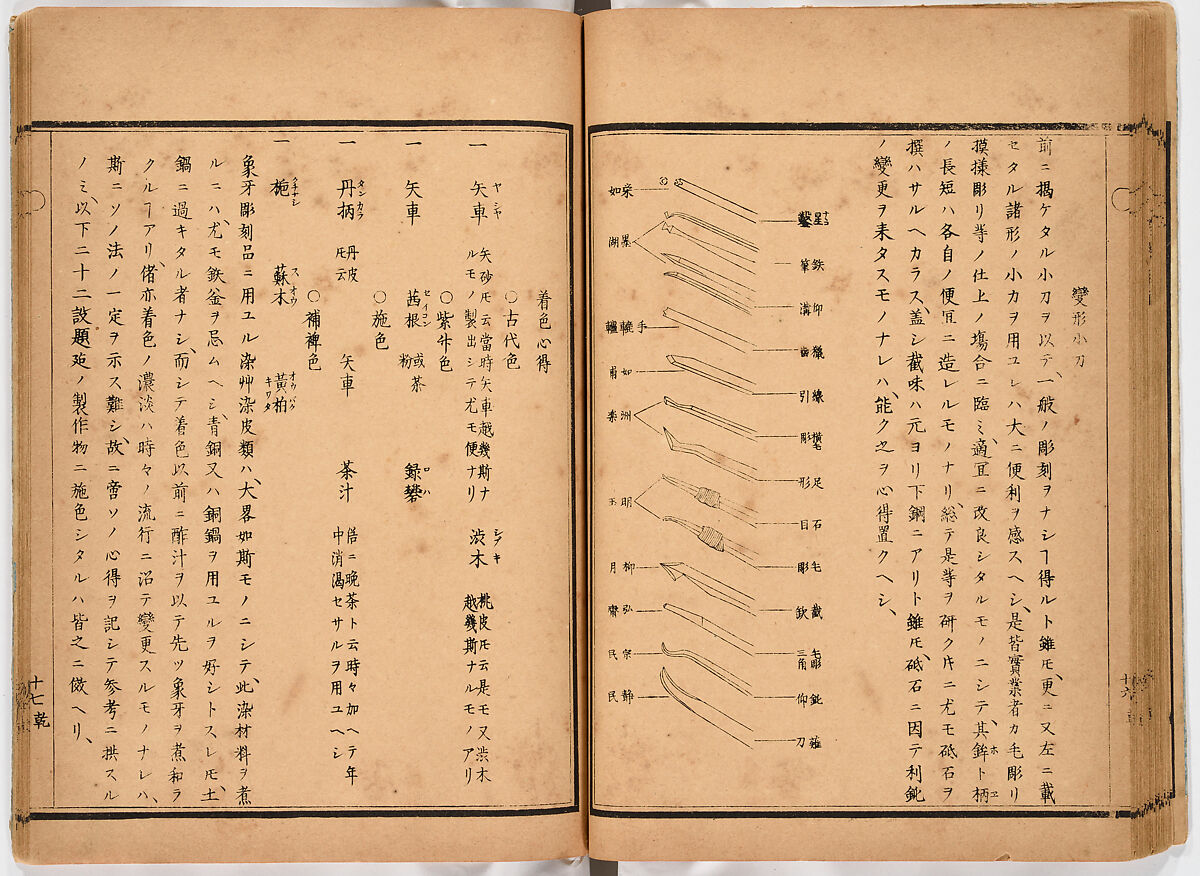 變形小刀
前ニ揭ケタル小刀ヲ以テ、一般ノ彫刻ヲナシ得ルト雖モ、更ニ又左ニ載
セタル諸形ノ小カヲ用ユレハ大ニ便利ヲ感スヘシ、是皆實業者カ毛彫リ
摸様彫リ等ノ仕上ノ塲合ニ臨ミ、適宜ニ改良シタルモノニシテ、其鉾ト柄
ノ長短ハ各自ノ便宜ニ造レルモノナリ、総テ是等ヲ研クキニ尤モ砥石ヲ
撰ハサルヘカラス、盖シ截味ハ元ヨリ下鋼ニアリト雖モ、砥石ニ因テ利鈍
ノ變更ヲ来タスモノナレハ、能ク之ヲ心得置クヘシ、
星鏨
鉄筆
仰溝
齒
引
橫毛彫
足形
石目
毛彫
截欽
毛彫三角
鈍仰
刀
如
墨湖
手
如
洲
明玉
柳月
弘齋
宗民
静民
着色心得
〇古代色
一 矢車 ヤシヤ 矢砂ㇳモ云當時矢車越幾斯ナルモノ製出シテ尤モ便ナリ 渋木 シブキ 桃皮ㇳモ云是モ又渋木越幾斯ナルモノアリ
〇紫竹色
一 矢車 茜根 セイコン 或茶粉 緑礬 ロハ
〇施色
一 丹柄 タンカラ 丹波ㇳモ云 矢車 茶汁 倍ニ晩茶ト云時々加ヘテ年中消渇セサルヲ用ユヘシ
〇補裨色
一 梔 クチナシ 蘇木 スオウ 黄柏 オウバク キワタ
象牙彫刻品ニ用ユル染艸染皮類ハ、大畧如斯モノニシテ、此染材料ヲ煮
ルニハ、尤モ鉄釜ヲ忌ムヘシ、青銅又ハ銅鍋ヲ用ユルヲ好シトスレモ、土
鍋ニ過キタル者ナシ、而シテ着色以前ニ酢汁ヲ以テ先ツ象牙ヲ煮和ラ
クルヿアリ、偖亦着色ノ濃淡ハ時々ノ流行ニ沿テ變更スルモノナレハ、
斯ニソノ法ノ一定ヲ示ス難シ、故ニ啻ソノ心得ヲ記シテ参考ニ拱スル
ノミ、以下二十二設題㢟ノ製作物ニ施色シタルハ皆之ニ倣ヘリ、
十七 乾